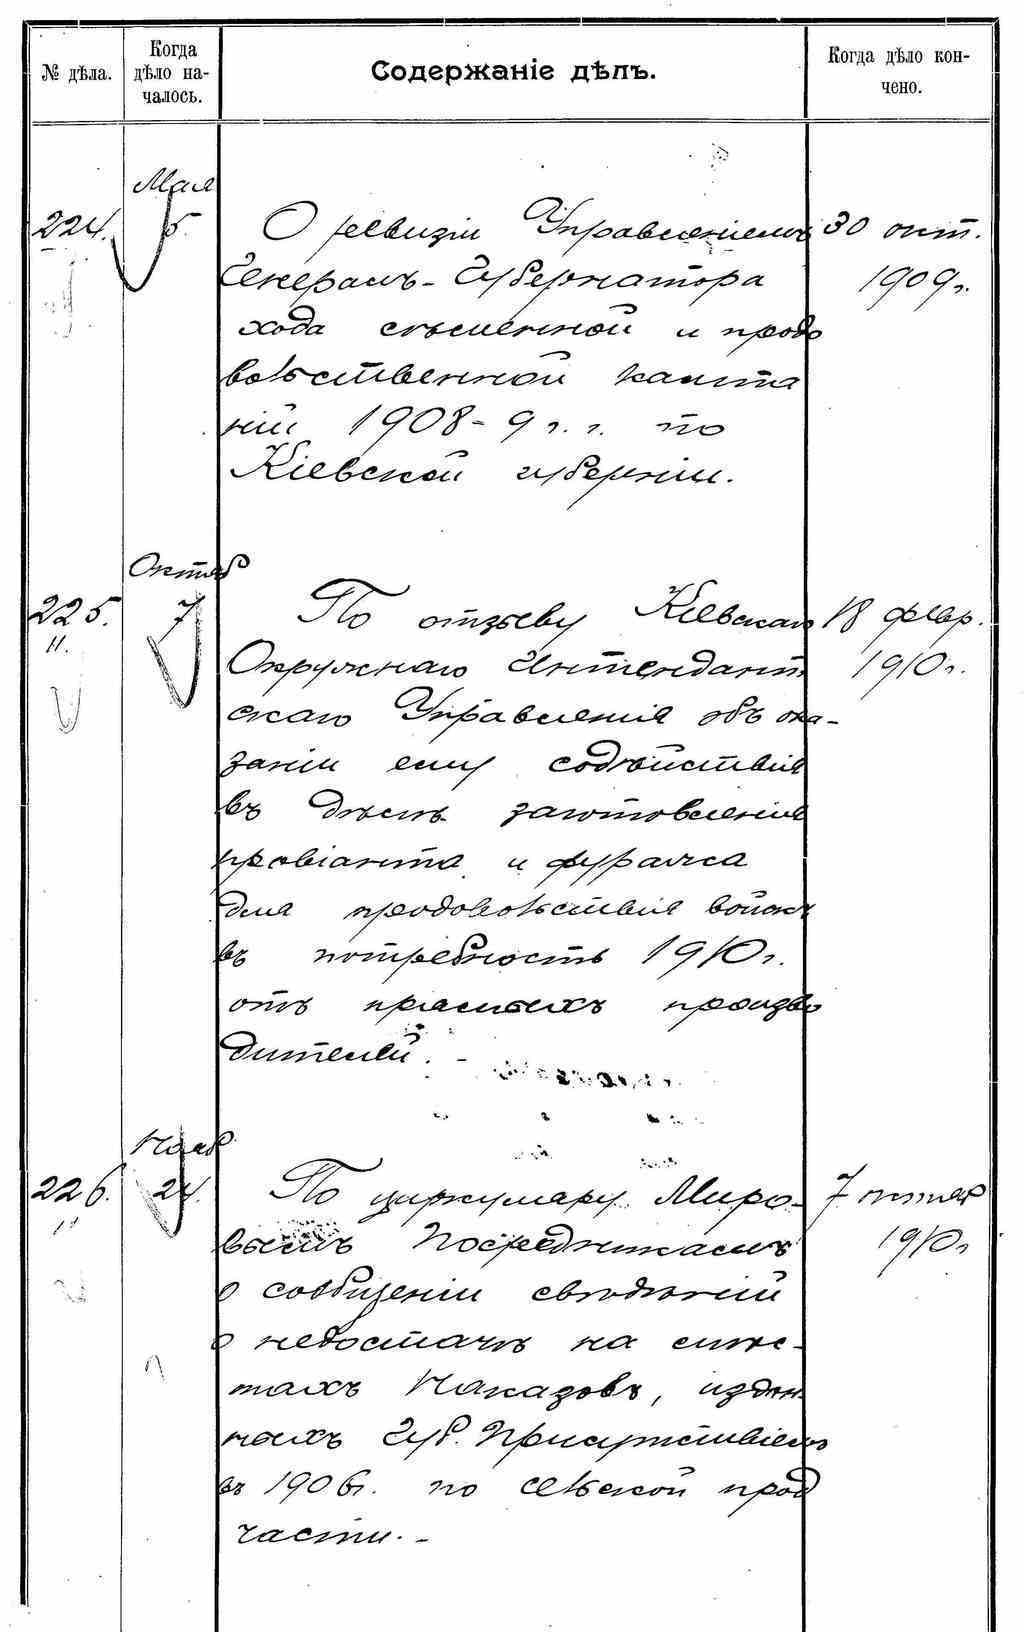 № дѣла.
Когда
дѣло на-
чалось.
Содержаніе дѣлъ.
Когда дѣло кон-
чено.
Мая
224. 5. О ревизіи Управленіемъ 30 окт.
Генералъ-Губернатора 1909 г.
хода сѣменной и продо
вольственной кампа
ніи 1908-9 г. г. по
Кіевской губерніи.
Октяб
225. 7 По отзыву Кіевскаго 18 февр.
Окружнаго Интендант 1910 г.
скаго Управленія объ ока-
заніи ему содѣйствія
въ дѣлѣ заготовленія
провіанта и фуража
для продовольствія войскъ
въ потребность 1910 г.
отъ прямыхъ произво
дителей. -
Нояб
226. 24. По циркуляру Миро- 7 октяб
вымъ Посредникамъ 1910 г
о сообщеніи свѣдѣній
о недостачѣ на смѣс-
тахъ Наказовъ, издан
ныхъ Губ. Присутствіемъ
въ 1906 г. по сельской прод
части. -